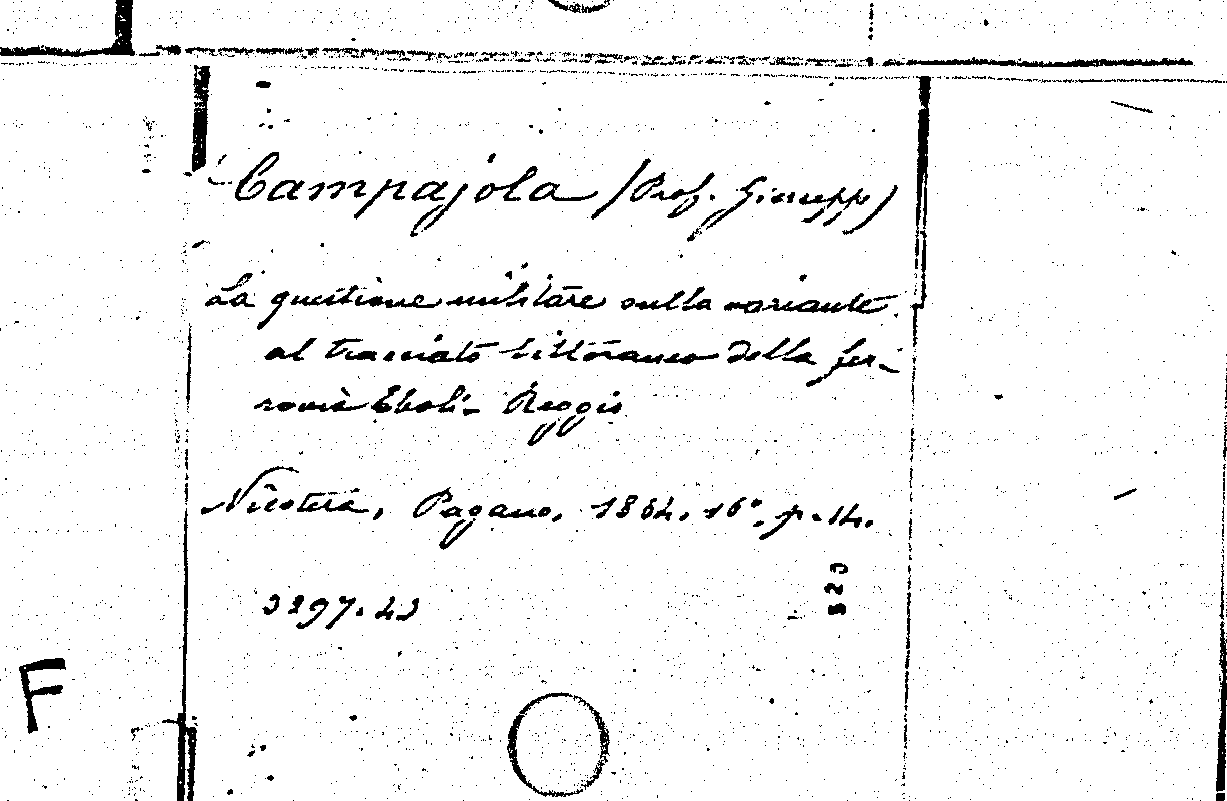 Campajola (Prof. Giuseppe)
La questione militare sulla variante
al tracciato littoraneo della fer-
rovia Eboli-Reggio
Nicotera, Pagano, 1864. 16°, p. 14.
3297.23
523
F